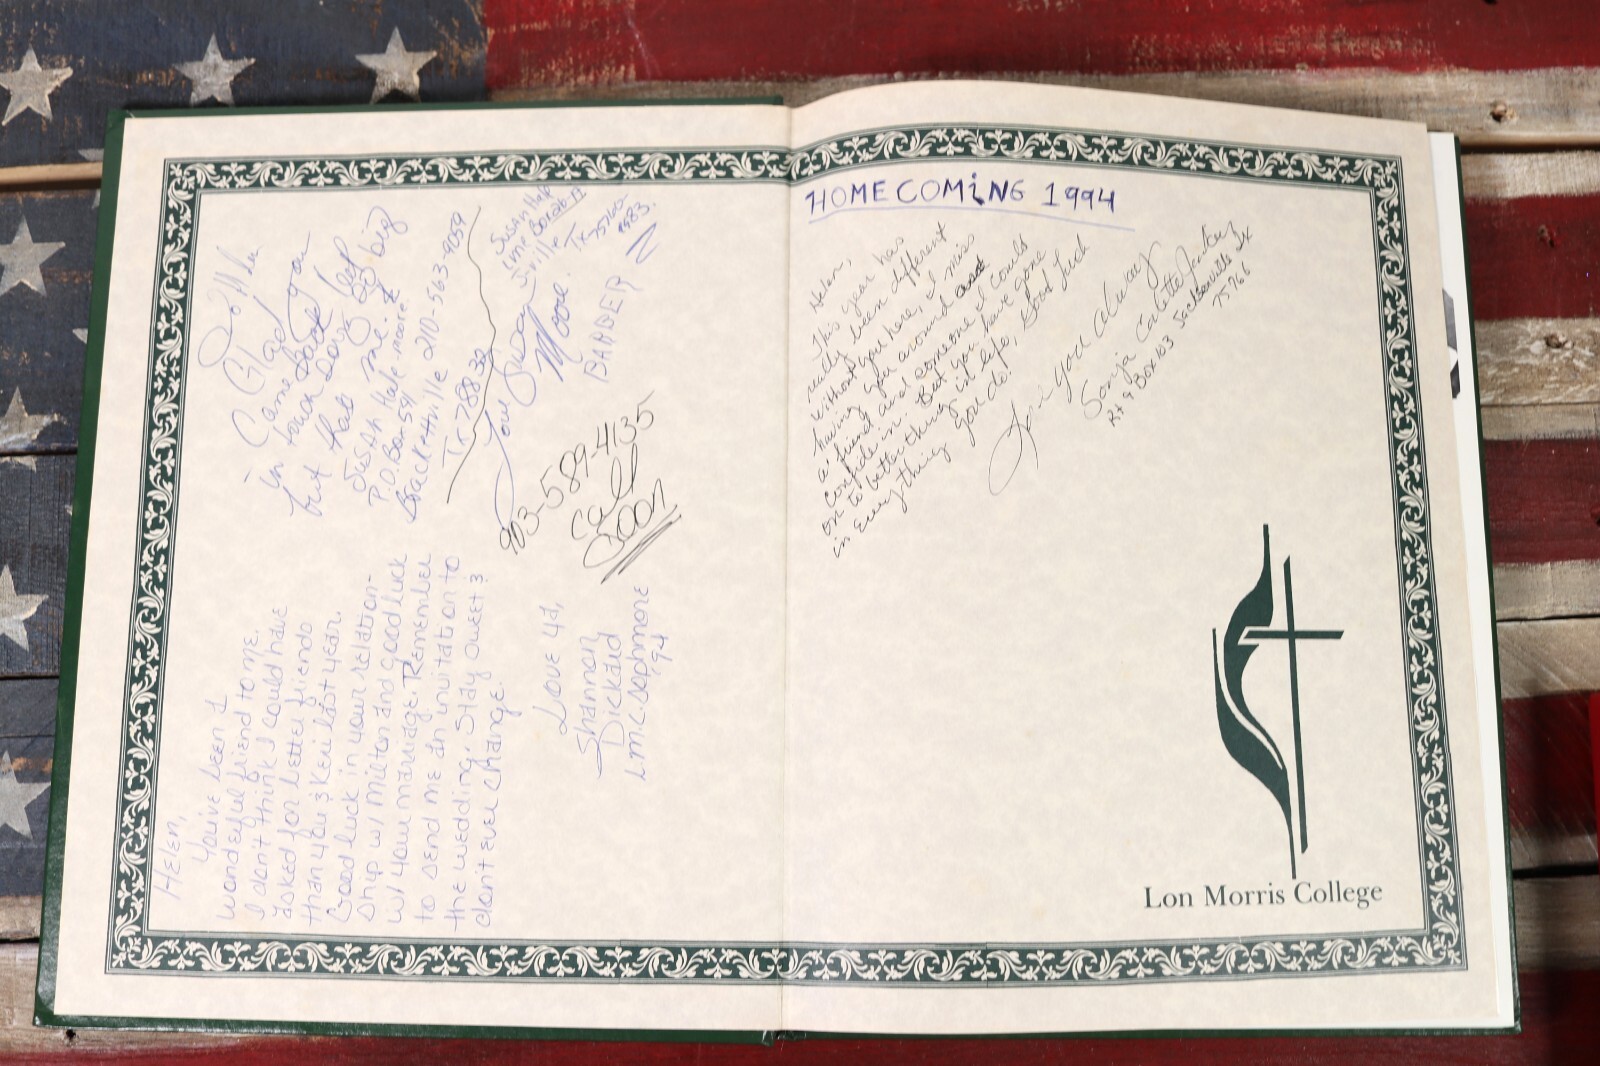 Glad
came back you
in touch Daryg
but that
Susan Hale-moore
P.O. Box 591
Brackettville 210-563-9059
Tx 78832
Love
Susan
Moore
Susan Hale
Tx
BARBER
903-589-4135
Call
Soon
Helen,
You've been 1
wonderful friend to me.
I don't think I could have
asked for better friends
than you & Keri last year.
Good luck in your relation-
ship w/ Milton and good luck
w/ your marriage. Remember
to send me an invitation to
the wedding. Stay sweet &
don't ever change.
Love ya,
Shannon
Dickard
LMC. Sophmore
'94
HOMECOMING 1994
Helen,
This year has
really been different
without you here, I miss
having you around
a friend and someone I could
confide in. But you have gone
on to better things in life, Good Luck
in everything you do!
Love you always
Sonja
Rt 9 Box 103 Jacksonville Tx
75766
Lon Morris College